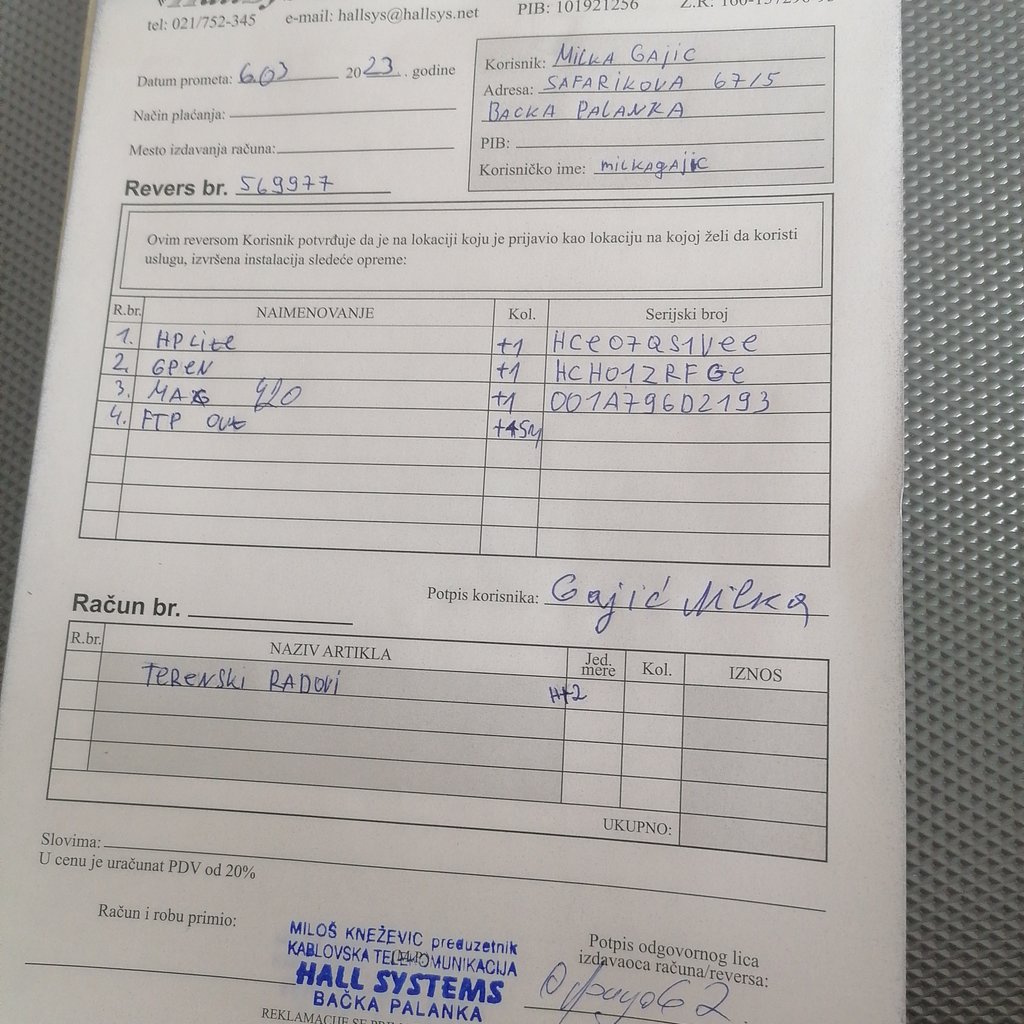 tel: 021/752-345 e-mail: hallsys@hallsys.net PIB: 101921256 Z.R.
Datum prometa: 6.03 2023. godine
Način plaćanja:
Mesto izdavanja računa:
Revers br. 569977
Korisnik: MILKA GAJIC
Adresa: SAFARIKOVA 67/5
BACKA PALANKA
PIB:
Korisničko ime: milkagajic
Ovim reversom Korisnik potvrđuje da je na lokaciji koju je prijavio kao lokaciju na kojoj želi da koristi
uslugu, izvršena instalacija sledeće opreme:
R.br. NAIMENOVANJE Kol. Serijski broj
1. HP Lite +1 HCE07QS1VEE
2. GPEN +1 HCH01ZRFGE
3. MAG 420 +1 001A796D2193
4. FTP OUT
Potpis korisnika: Gajić Milka
Račun br.
R.br. NAZIV ARTIKLA Jed. mere Kol. IZNOS
TERENSKI RADOVI H+2
UKUPNO:
Slovima:
U cenu je uračunat PDV od 20%
Račun i robu primio:
MILOŠ KNEŽEVIC preduzetnik
KABLOVSKA TELEKOMUNIKACIJA
HALL SYSTEMS
BAČKA PALANKA
Potpis odgovornog lica
izdavaoca računa/reversa:
REKLAMACIJE SE